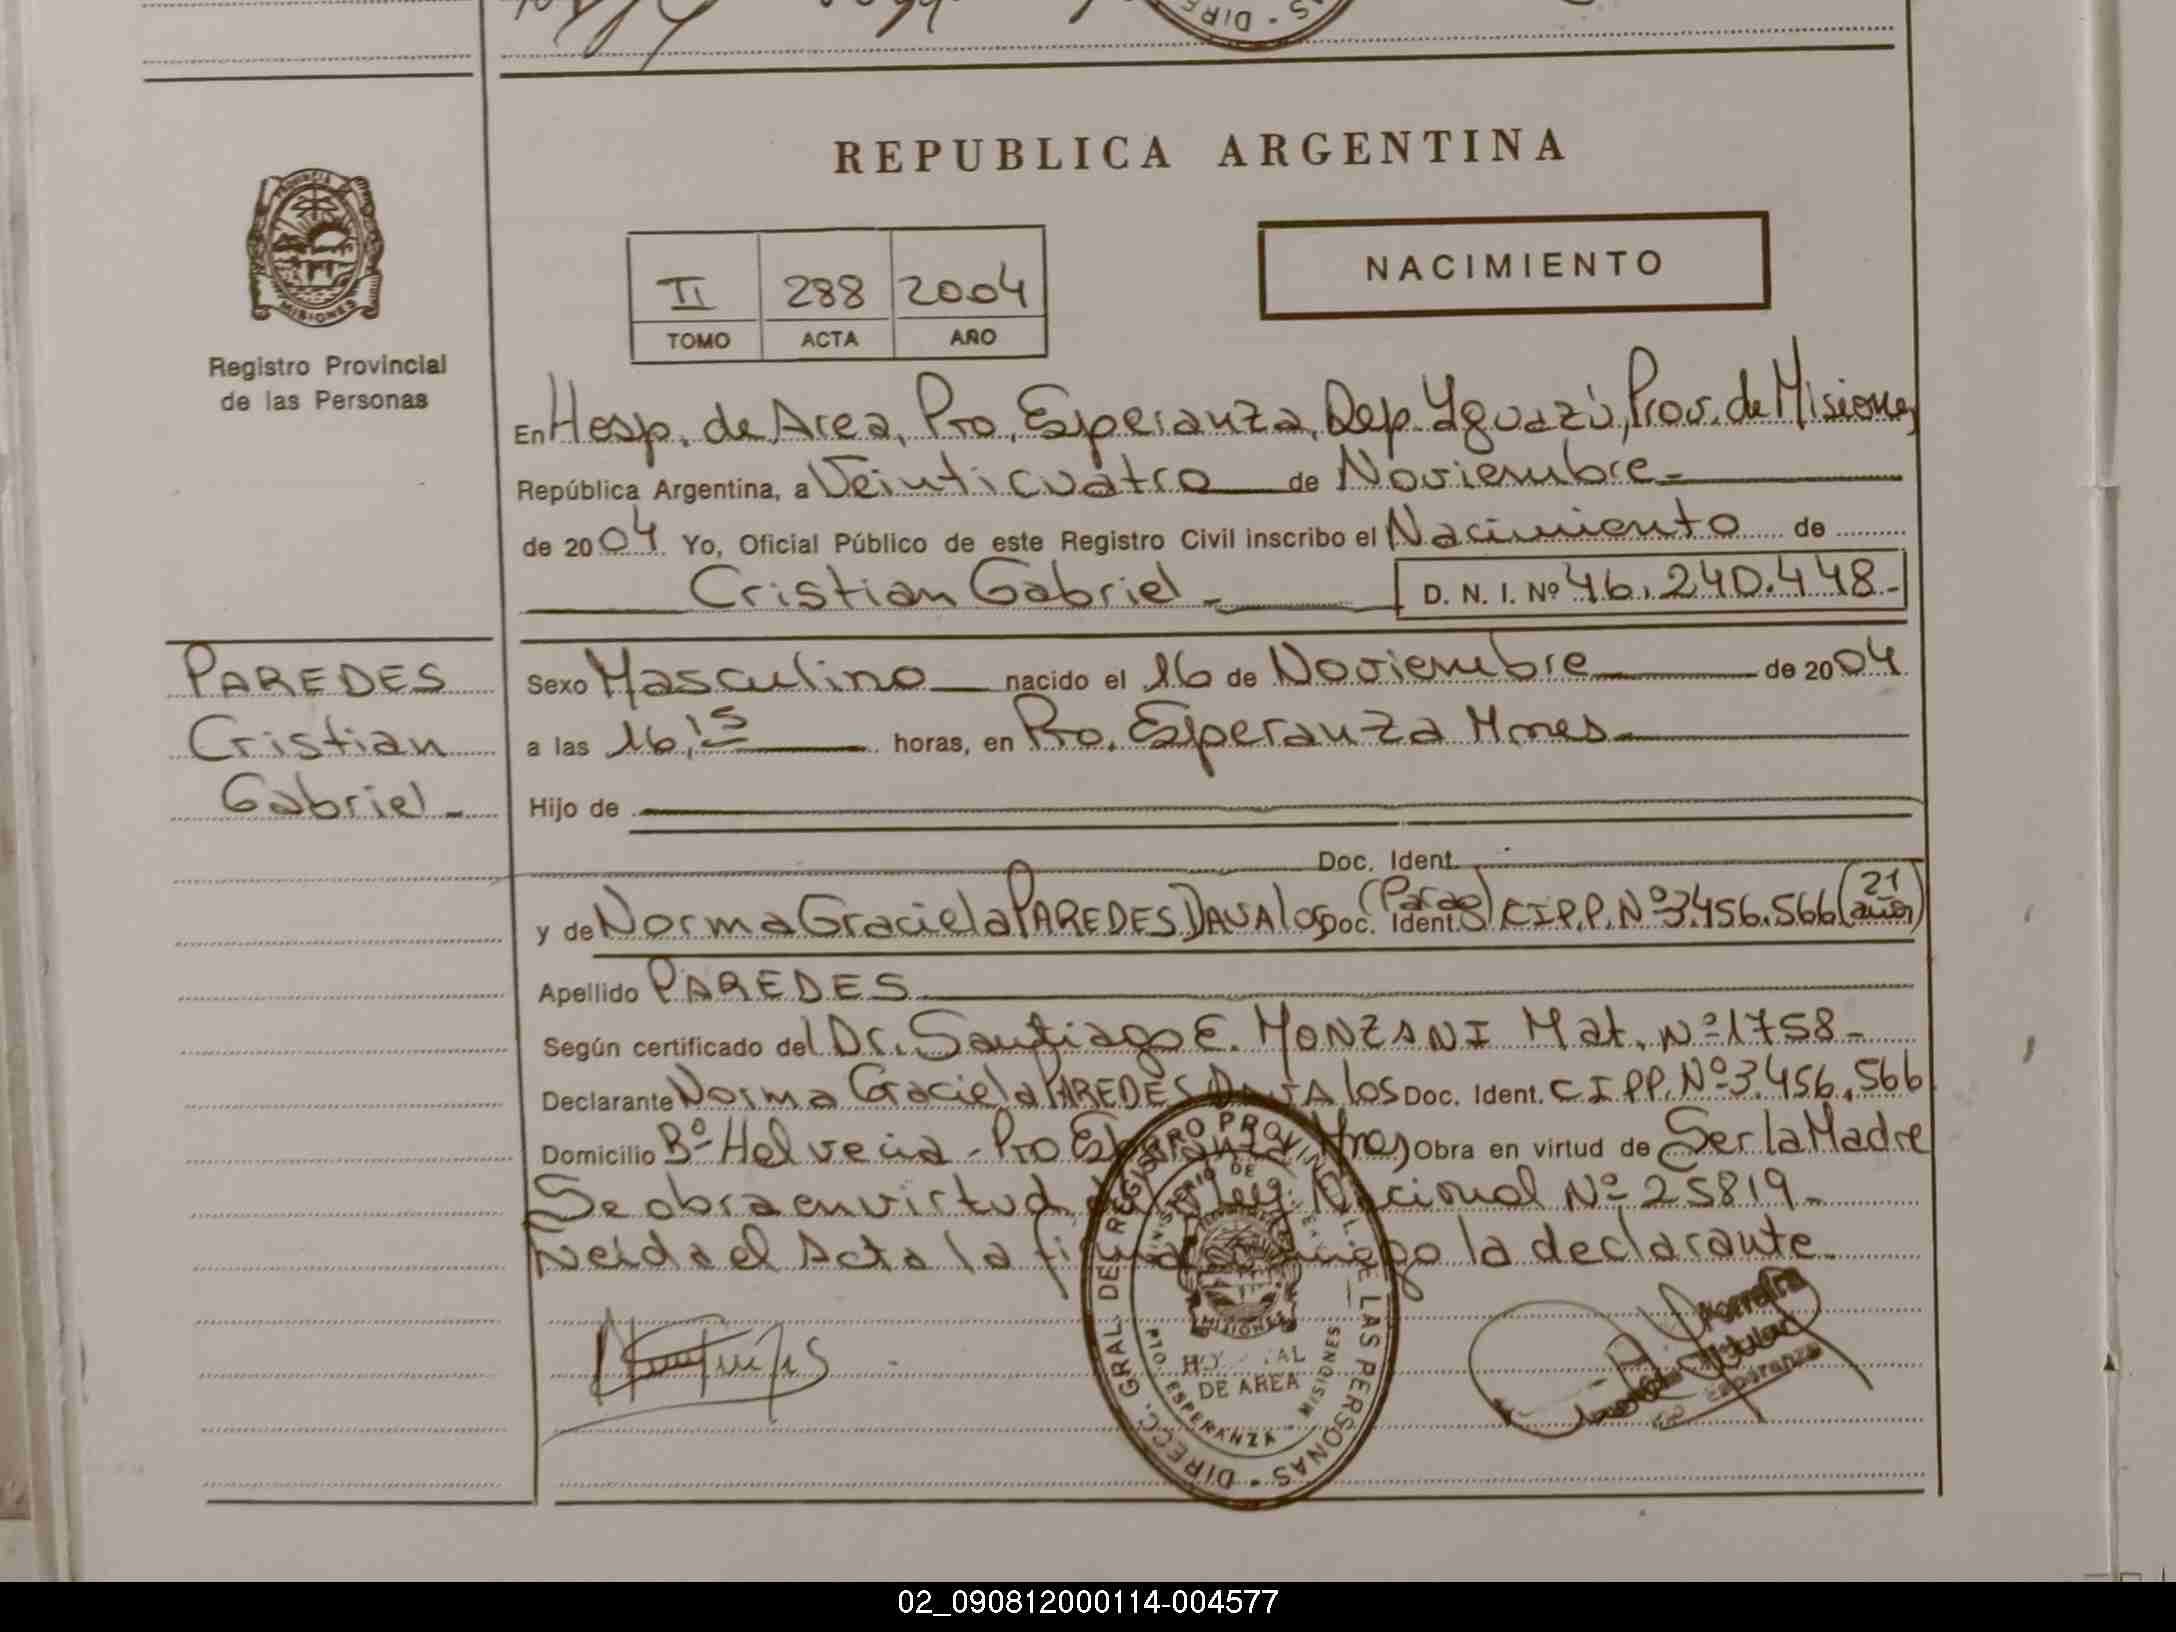 REPUBLICA ARGENTINA
PROVINCIA
MISIONES
Registro Provincial
de las Personas
II 288 2004
TOMO ACTA AÑO
NACIMIENTO
En Hosp. de Area, Pto. Esperanza, Dep. Yguazú, Prov. de Misiones
República Argentina, a Veinticuatro de Noviembre
de 2004 Yo, Oficial Público de este Registro Civil inscribo el Nacimiento de
Cristian Gabriel D. N. I. Nº 46.240.448.-
PAREDES
Cristian
Gabriel
Sexo Masculino nacido el 16 de Noviembre de 2004
a las 16,15 horas, en Pto. Esperanza Mnes
Hijo de
Doc. Ident.
y de Norma Graciela PAREDES DAVALOS Doc. Ident. (Parag) C I P.P. Nº 3.456.566 (21 años)
Apellido PAREDES
Según certificado del Dr. Santiago E. MONZANI Mat. Nº 1758-
Declarante Norma Graciela PAREDES DAVALOS Doc. Ident. C I P.P. Nº 3.456.566
Domicilio Bº Helvecia - Pto Esperanza Mnes Obra en virtud de Ser la Madre
Se obra en virtud de la Ley Nacional Nº 25819-
Leída el Acta la firma conmigo la declarante
DIRECC. GRAL. DE REGISTRO PROVINCIAL DE LAS PERSONAS
MINISTERIO DE
MISIONES
HOSPITAL
DE AREA
PTO. ESPERANZA - MISIONES
Titular
Esperanza
02_090812000114-004577